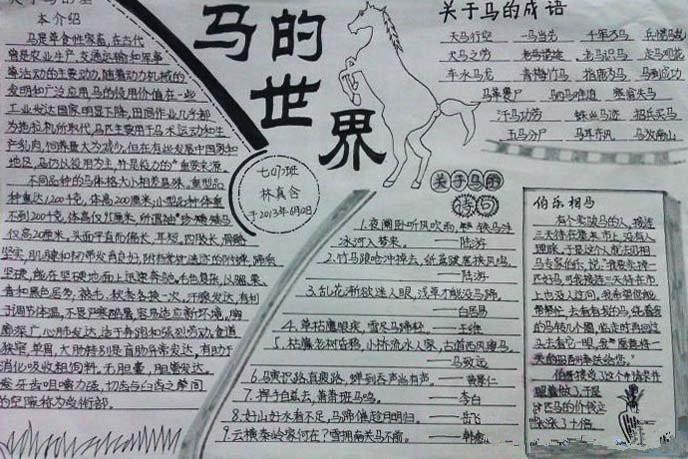 关于马的基
本介绍
马是草食性家畜,在古代
曾是农业生产、交通运输和军事
等活动的主要动力,随着动力机械的
发明和广泛应用,马的役用价值在一些
工业发达国家明显下降,田间作业几乎都
为拖拉机所取代,马匹主要用于马术运动和生
产乳肉,饲养量大为减少,但在有些发展中国家和
地区,马仍以役用为主,并是役力的重要来源。
不同品种的马体格大小相差悬殊,重型品
种重达1200千克,体高200厘米;小型品种体重
不到200千克,体高仅95厘米,所谓袖珍矮马
仅高20厘米。头面平直而偏长,耳短。四肢长,骨骼
坚实,肌腱和韧带发育良好,附有掌枕遗迹的附蝉,蹄质
坚硬,能在坚硬地面上迅速奔驰。毛色复杂,以骝、栗、
青和黑色居多,被毛、秋冬各换一次。汗腺发达,有利
于调节体温,不畏严寒酷暑,容易适应新环境,胸
廓深广,心肺发达,适于奔跑和强烈劳动,食道
狭窄,单胃,大肠特别是盲肠异常发达,有助于
消化吸收粗饲料,无胆囊,胆管发达。
牙齿咀嚼力强,切齿与臼齿之间
的空隙称为受衔部。
马的
世界
七(7)班
林真含
于2013年6月10日
关于马的成语
天马行空 一马当先 千军万马 兵慌马乱
犬马之劳 老马识途 走马观花
车水马龙 青梅竹马 指鹿为马 马到功成
马革裹尸 驷马难追 塞翁失马
汗马功劳 蛛丝马迹 招兵买马
五马分尸 马耳东风 马放南山
关于马的
诗句
1.夜阑卧听风吹雨,铁马冰河入梦来。——陆游
2.竹马踉跄冲掉去,纸鸢跋扈挟风鸣。
——陆游
3.乱花渐欲迷人眼,浅草才能没马蹄。
——白居易
4.草枯鹰眼疾,雪尽马蹄轻。——王维
5.枯藤老树昏鸦,小桥流水人家,古道西风瘦马。
——马致远
6.马寞识路真疲路,蝉到吞声尚有声。——黄景仁
7.挥手自兹去,萧萧班马鸣。——李白
8.好山好水看不足,马蹄催趁月明归。——岳飞
9.云横秦岭家何在?雪拥南关马不前。——韩愈
伯乐相马
有个卖骏马的人,接连
三天待在集市上,没有人
理睬。于是这个人就去见相
马专家伯乐,说:我要卖掉一
匹好马,可我接连三天待在市
上也没人过问,我希望您能
帮帮忙,去看看我的马,绕着我
的马转几个圈,临走时再回过
头去看它一眼,我愿意奉
送给您。"
伯乐接受了这个
于是
匹马的价钱
涨了十倍